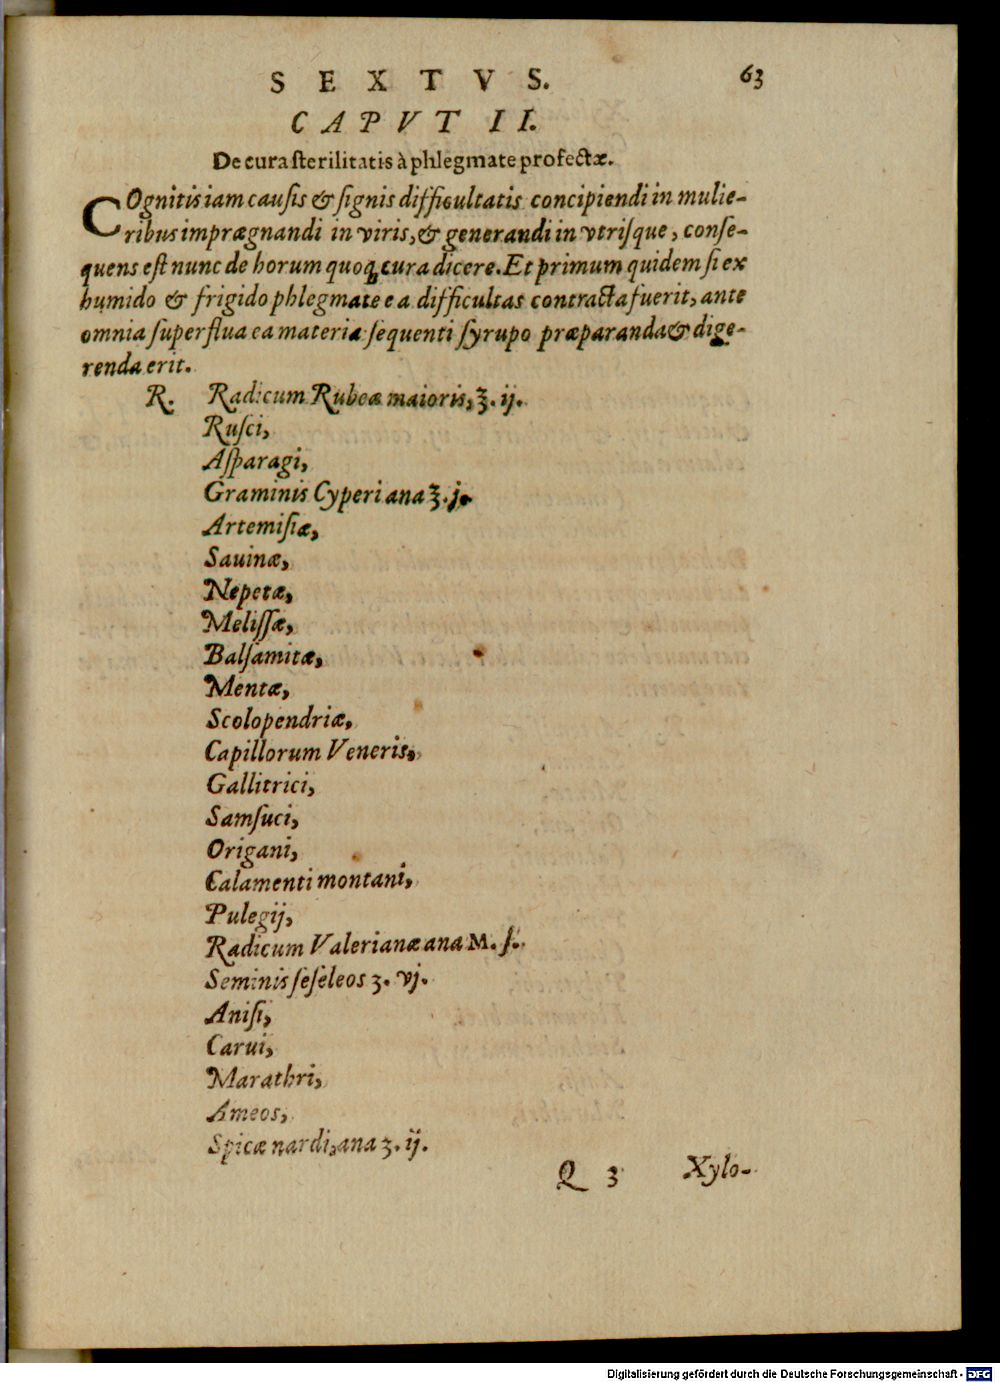 SEXTVS. 63
CAPVT II.
De cura sterilitatis à phlegmate profectæ.
COgnitis iam causis & signis difficultatis concipiendi in mulie-
ribus imprægnandi in viris, & generandi in vtrisque, conse-
quens est nunc de horum quoq; cura dicere. Et primum quidem si ex
humido & frigido phlegmate ea difficultas contracta fuerit, ante
omnia superflua ea materia sequenti syrupo præparanda & dige-
renda erit.
R. Radicum Rubeæ maioris, ʒ. ij.
Rusci,
Asparagi,
Graminis Cyperi ana ʒ. j.
Artemisiæ,
Sauinæ,
Nepetæ,
Melissæ,
Balsamitæ,
Mentæ,
Scolopendriæ,
Capillorum Veneris,
Gallitrici,
Samsuci,
Origani,
Calamenti montani,
Pulegij,
Radicum Valerianæ ana M. ſ.
Seminis seseleos ʒ. vj.
Anisi,
Carui,
Marathri,
Ameos,
Spicæ nardi, ana ʒ. ij.
Q 3 Xylo-
Digitalisierung gefördert durch die Deutsche Forschungsgemeinschaft - DFG